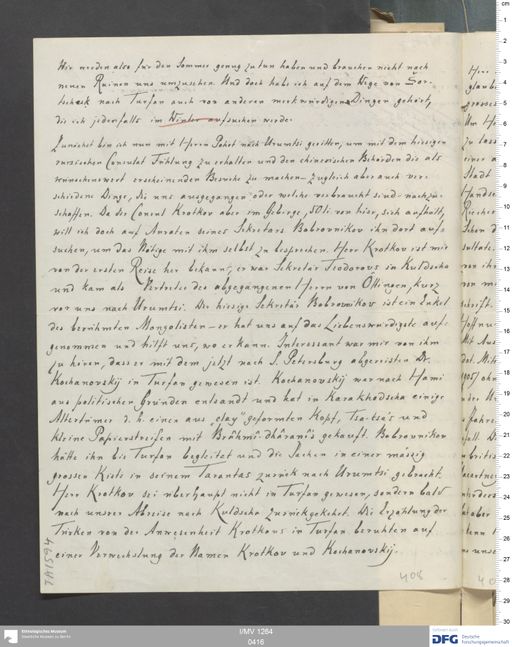 Wir werden also für den Sommer genug zu tun haben und brauchen nicht nach
neuen Ruinen uns umzusehen. Und doch habe ich auf dem Wege von
nach Turfan auch von anderen merkwürdigen Dingen gehört,
die ich jedenfalls im Winter aufsuchen werde.
Zunächst bin ich nun mit Herrn Pohrt nach Urumtsi geritten, um mit dem hiesigen
russischen Consulat Fühlung zu erhalten und den chinesischen Behörden die als
wünschenswert erscheinenden Besuche zu machen – zugleich aber auch ver-
schiedene Dinge, die uns ausgegangen oder welche verbraucht sind – nachzu-
schaffen. Da der Consul Krotkov aber im Gebirge, 50 li von hier, sich aufhält,
will ich doch auf Anraten seines Sekretärs Bobrovnikov ihn dort auf-
suchen, um das Nötige mit ihm selbst zu besprechen. Herr Krotkov ist mir
von der ersten Reise her bekannt, er war Sekretär Feodorovs in Kuldscha
und kam als Vertreter des abgegangenen Herrn von Öttingen, kurz
vor uns nach Urumtsi. Der hiesige Sekretär Bobrovnikov ist ein Enkel
des berühmten Mongolisten – er hat uns auf das Liebenswürdigste auf-
genommen und hilft uns, wo er kann. Interessant war mir von ihm
zu hören, dass er mit dem jetzt nach S. Petersburg abgereisten Dr.
Kochanovskij in Turfan gewesen ist. Kochanovskij war nach Hami
aus politischen Gründen entsandt und hat in Karakhodscha einige
Altertümer d. h. einen aus "clay" geformten Kopf, Tsa-tsa's und
kleine Papierstreifen mit Brāhmī-dhāraṇī's gekauft. Bobrovnikov
hätte ihn bis Turfan begleitet und die Sachen in einer mässig
grossen Kiste in seinem Tarantas zurück nach Urumtsi gebracht.
Herr Krotkov sei überhaupt nicht in Turfan gewesen, sondern bald
nach unsrer Abreise nach Kuldscha zurückgekehrt. Die Erzählung der
Türken von der Anwesenheit Krotkovs in Turfan beruhten auf
einer Verwechslung der Namen Krotkov und Kochanovskij.
408
TA1594
Ethnologisches Museum
Staatliche Museen zu Berlin
I/MV 1264
0416
DFG Deutsche
Forschungsgemeinschaft